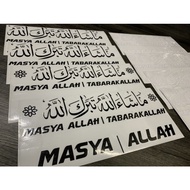 ما شاء الله تبارك الله
MASYA ALLAH | TABARAKALLAH
ما شاء الله تبارك الله
MASYA ALLAH | TABARAKALLAH
ما شاء الله تبارك الله
MASYA ALLAH | TABARAKALLAH
MASYA | ALLAH